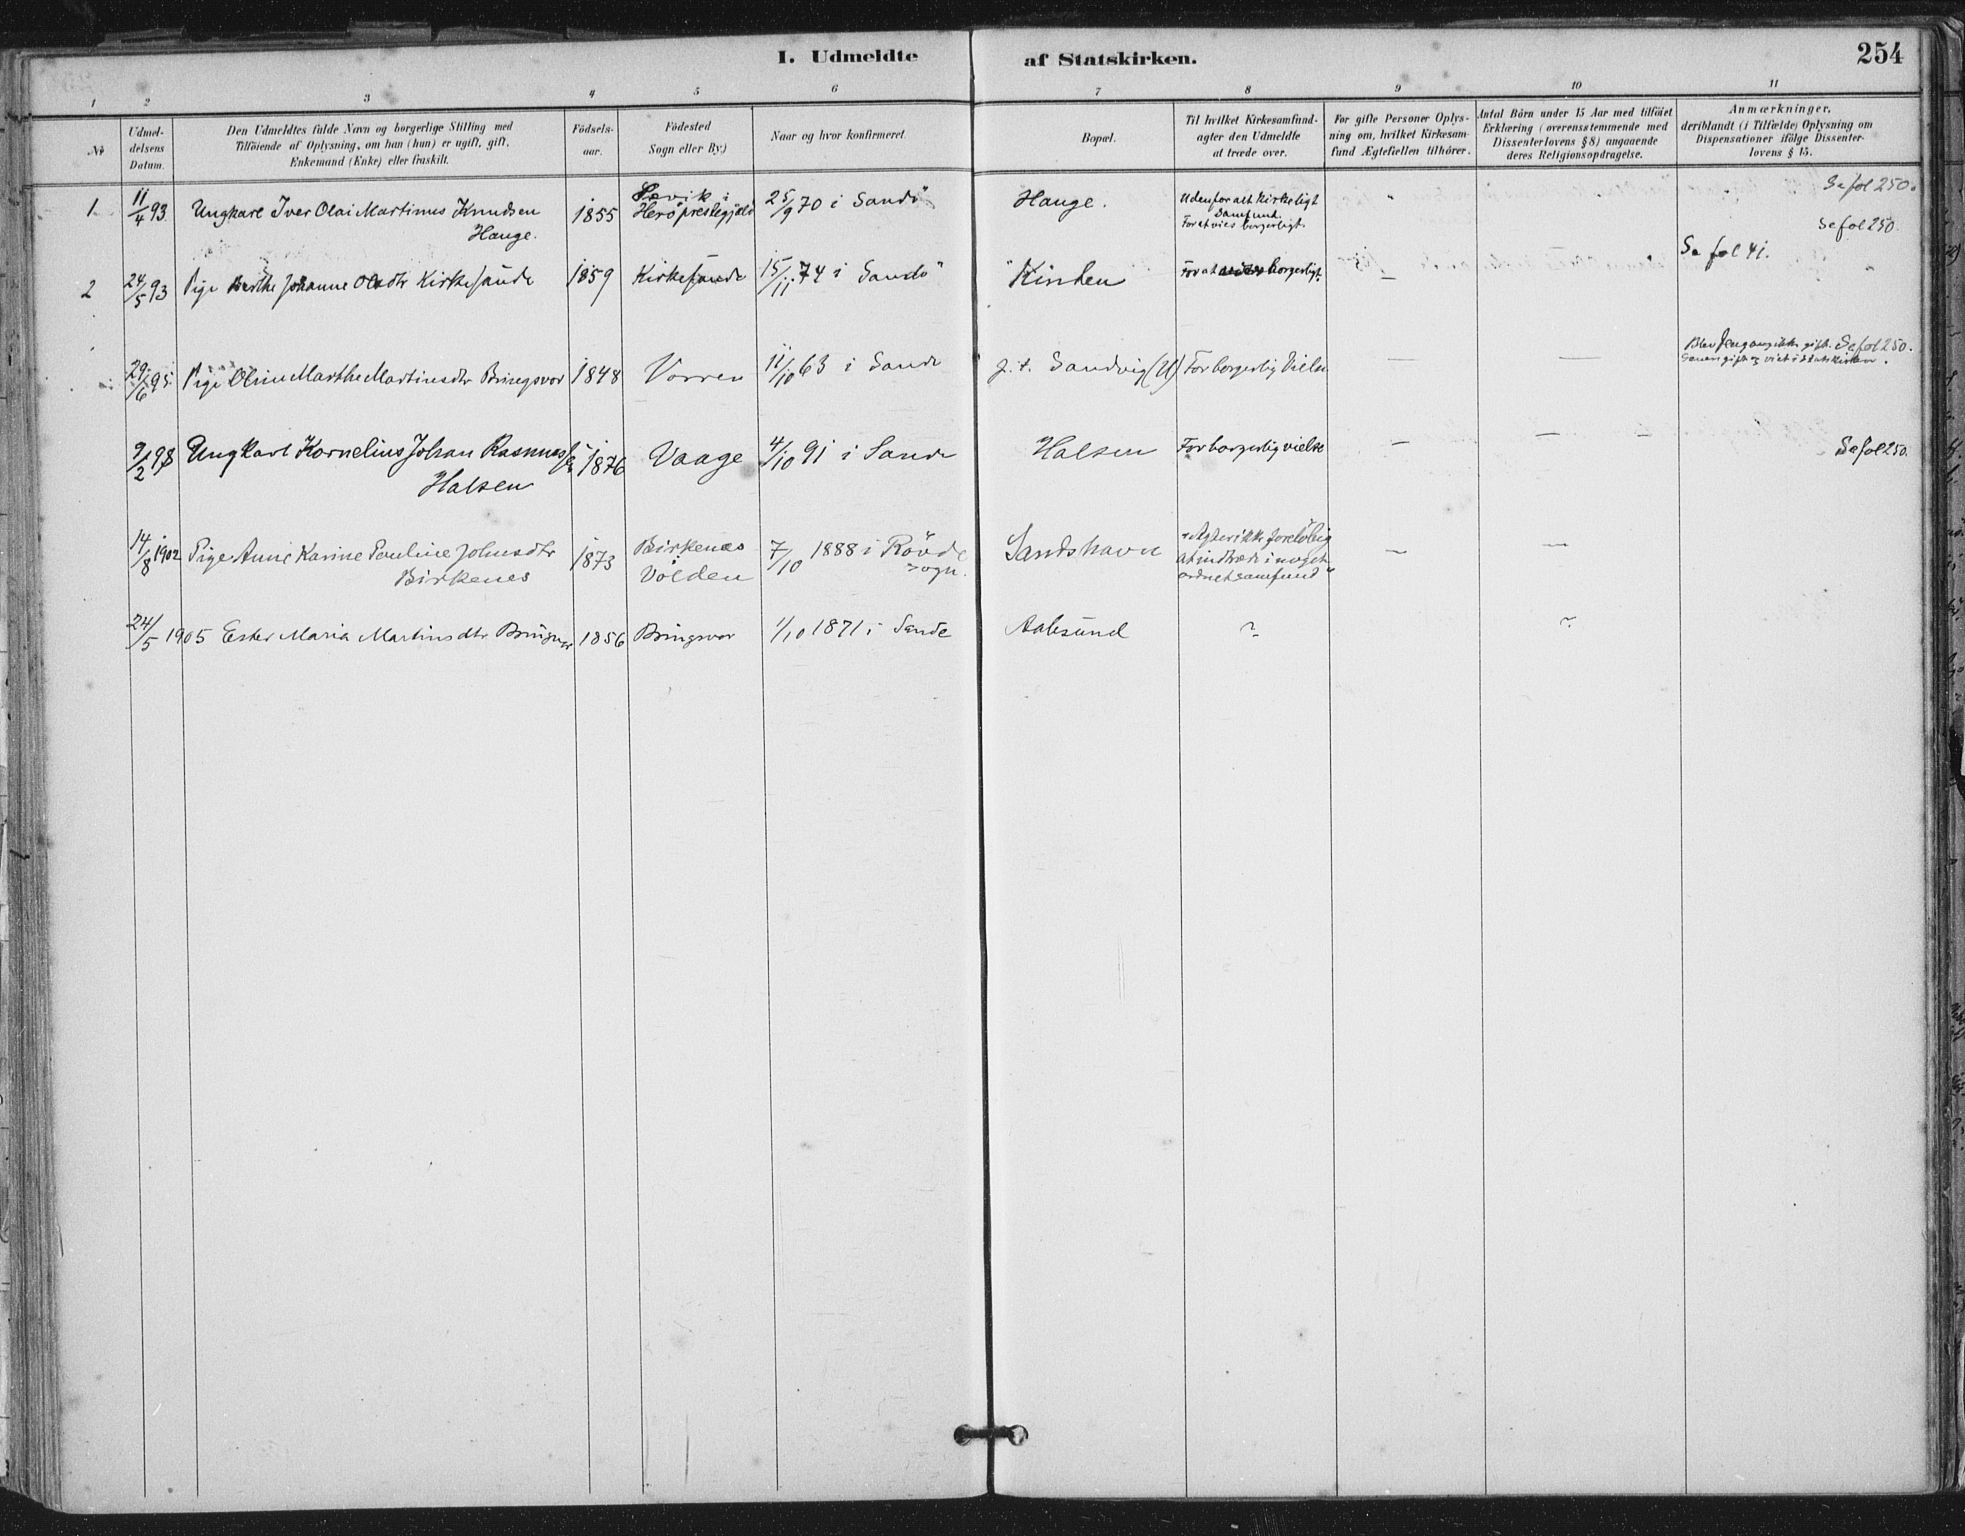 I. Udmeldte af Statskirken. 254
1 2 3 4 5 6 7 8 9 10 11
№
Udmel-
delsens
Datum.
Den Udmeldtes fulde Navn og borgerlige Stilling med
Tilföiende af Oplysning, om han (hun) er ugift, gift,
Enkemand (Enke) eller fraskilt.
Födsels-
aar.
Födested
Sogn eller By.)
Naar og hvor konfirmeret.
Bopæl.
Til hvilket Kirkesamfund
agter den Udmeldte
at træde over.
For gifte Personer Oplys-
ning om, hvilket Kirkesam-
fund Ægtefællen tilhörer.
Antal Börn under 15 Aar med tilföiet
Erklæring (overensstemmende med
Dissenterlovens § 8) angaaende
deres Religionsopdragelse.
Anmærkninger,
deriblandt (i Tilfælde) Oplysning om
Dispensationer ifölge Dissenter-
lovens § 15.
1 11/4 93 Ungkarl Iver Olai Martinus Knudsen
Hauge.
1855
Sævik i
Herö prestegjæld
25/9 70 i Sandö
Hauge.
Udenfor alt kirkeligt
Samfund.
For at vies borgerligt.
Se fol 250.
Se fol 250.
2 24/5 93 Pige Berthe Johanne Olsdtr Kirkesande 1859 Kirkesande 15/11 74 i Sandö Kinden For at borgerligt. –
Se fol 41.
29/6 95. Pige Oline Marthe Martinsdtr Bringsvor 1848 Vorren 11/10 63 i Sande p.t. Sandvig (U) For borgerlig Vielse — —
Blev gift. Se fol 250.
gift og viet i Statskirken.
9/2 98 Ungkarl Kornelius Johan Rasmussen
Halsen
1876 Vaage 4/10 91 i Sande Halsen For borgerlig vielse — — – Se fol 250.
14/8 1902 Pige Anne Karine Pauline Johnsdtr
Birkenes
1873
Birkenes
Volden
7/10 1888 i Rövde
sogn.
Sandshavn
"Agter ikke foreløbig
at indtræde i noget
ordnet samfund"
— —
24/5 1905 Ester Maria Martinsdtr Bringsvor 1856 Bringsvor 1/10 1871 i Sande Aalesund ~ ~